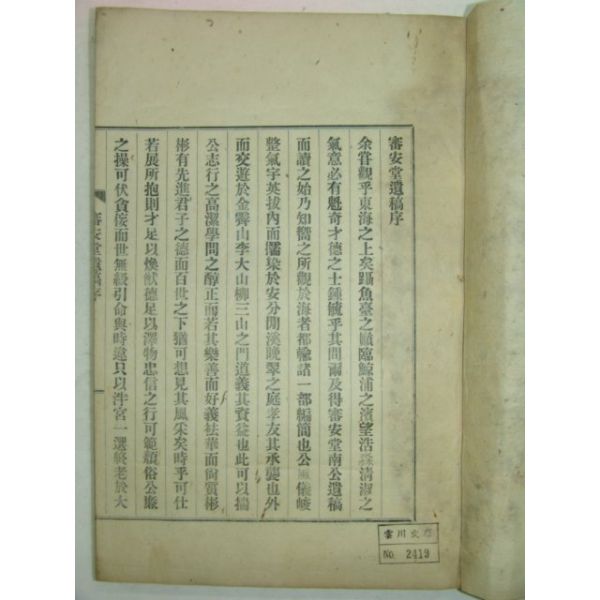 審安堂遺稿序
余嘗觀乎東海之上矣躡魚臺之巓臨鯨浦之濱望浩淼淸淑之
氣意必有魁奇才德之士鍾毓乎其間爾及得審安堂南公遺稿
而讀之始乃知嚮之所觀於海者都輸諸一部編簡也公 儀峻
整氣宇英拔內而擩染於安分閒溪晩翠之庭孝友其承襲也外
而交遊於金霽山李大山柳三山之門道義其資益也此可以揣
公志行之高潔學問之醇正而若其樂善而好義祛華而尙質彬
彬有先進君子之德而百世之下猶可想見其風采矣時乎可仕
若展所抱則才足以煥猷德足以澤物忠信之行可範頹俗公廉
之操可伏貪侫而世無綬引命與時違只以泮宮一選終老於大
審安堂遺稿序
雲川文庫
No. 2419